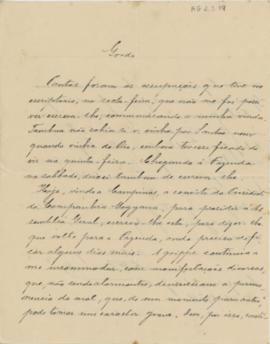 Gordo
Tantas foram as occupações q̃ tive no
escriptorio, na sexta-feira, que não me foi possi-
vel escrever-lhe, communicando a minha vinda.
Tambem não sabia se v. vinha por Santos nem
quando vinha do Rio, embora tivesse ficado de
ir na quinta-feira. Chegando á Fazenda
no sabbado, deixei tambem de escrever-lhe.
Hoje, vindo a Campinas, a convite da
Companhia Mogyana, para presidir á As-
sembléa Geral, escrevo-lhe esta, para dizer-lhe
que volto para a Fazenda, onde preciso de fi-
car alguns dias mais. A grippe continua a
me incommodar, com manifestações diversas,
que, não sendo alarmantes, denunciam a perma-
nencia do mal, que, de um momento para outro,
póde tomar um caracter grave. Sem, por isso,